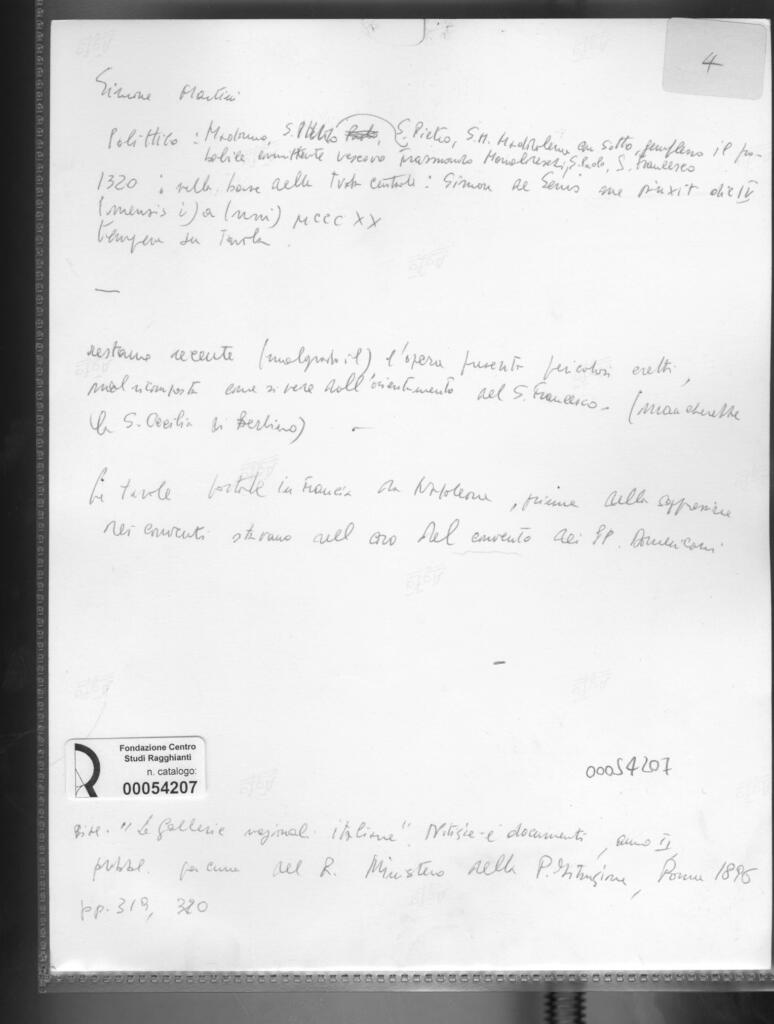 4
Simone Martini
Polittico : Madonna, S. Pietro, S. M. Maddalena con sotto, genuflesso il pro-
babile committente vescovo Trasmondo Monaldeschi, S. Paolo, S. Francesco
1320 : nella base della Tavola centrale : Simon de Senis me pinxit die IV
(mensis i) a (nni) MCCC XX
tempera su Tavola.
—
restauro recente (malgrado il) l'opera presenta pericolosi cretti,
mal ricomposta come si vede dall'orientamento del S. Francesco. (mancherebbe
la S. Cecilia di Berlino) -
Le tavole portate in Francia da Napoleone, prima della soppressione
dei conventi stavano nel coro del convento dei PP. Domenicani
Fondazione Centro
Studi Ragghianti
n. catalogo:
00054207
00054207
"Le Gallerie nazionali italiane". Notizie e documenti, anno II,
pubbl. per cura del R. Ministero della P. Istruzione, Roma 1896
pp. 319, 320